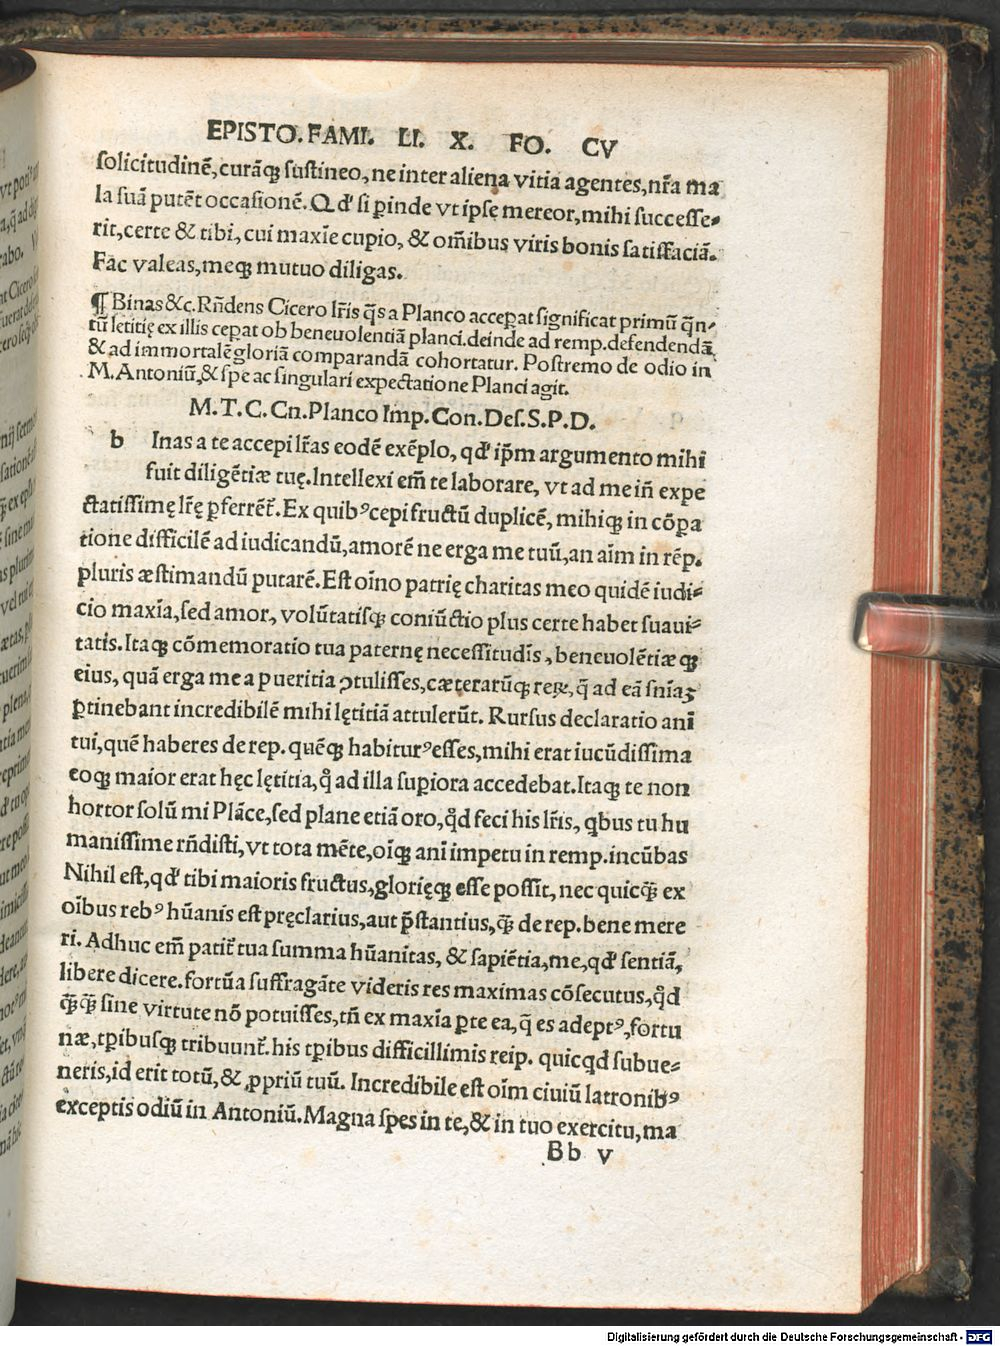 EPISTO. FAMI. LI. X. FO. CV
solicitudinē, curāq̃ ſuſtineo, ne inter aliena vitia agentes, nr̃a ma
la ſuā putēt occaſionē. Qd' ſi ꝑinde vt ipſe mereor, mihi ſucceſſe⸗
rit, certe & tibi, cui maxĩe cupio, & om̃ibus viris bonis ſatiſfaciā.
Fac valeas, meq̃ mutuo diligas.
¶ Binas &c. Rñdens Cicero lr̃is q̃s a Planco acceꝑat ſignificat primũ q̃n⸗
tũ lętitię ex illis ceꝑat ob beneuolentiā planci. deinde ad remp. defendendā,
& ad immortalē gloriā comparandā cohortatur. Poſtremo de odio in
M. Antoniũ, & ſpe ac ſingulari expectatione Planci agit.
M. T. C. Cn. Planco Imp. Con. Deſ. S. P. D.
b Inas a te accepi lr̃as eodē exēplo, qd' ip̃m argumento mihi
fuit diligētiæ tuę. Intellexi em̃ te laborare, vt ad me iñ expe
ctatiſſimę lr̃ę ꝑferrēt̃. Ex quibꝰ cepi fructũ duplicē, mihiq̃ in cõꝑa
tione difficilē ad iudicandũ, amorē ne erga me tuũ, an aĩm in rēp.
pluris æſtimandũ putarē. Eſt oĩno patrię charitas meo quidē iudi⸗
cio maxĩa, ſed amor, volũtatiſq̃ coniũctio plus certe habet ſuaui⸗
tatis. Itaq̃ cõmemoratio tua paternę neceſſitudis̃, beneuolētiæq̃
eius, quā erga me a pueritia ↄtuliſſes, cæterarũq̃ reꝝ, q̃ ad eā ſnĩaꝫ
ꝑtinebant incredibilē mihi lętitiā attulerũt. Rurſus declaratio anĩ
tui, quē haberes de rep. quēq̃ habiturꝰ eſſes, mihi erat iucũdiſſima
eoq̃ maior erat hęc lętitia, q̊ ad illa ſuꝑiora accedebat. Itaq̃ te non
hortor ſolũ mi Plāce, ſed plane etiā oro, q̊d feci his lr̃is, qbus tu hu
maniſſime rñdiſti, vt tota mēte, oĩq̃ anĩ impetu in remp. incũbas
Nihil eſt, qd' tibi maioris fructus, glorięq̃ eſſe poſſit, nec quicq̃ ex
oĩbus rebꝰ hũanis eſt pręclarius, aut p̃ſtantius, q̃ de rep. bene mere
ri. Adhuc em̃ patit̃ tua ſumma hũanitas, & ſapiētia, me, qd' ſentiā,
libere dicere. fortũa ſuffragāte videris res maximas cõſecutus, q̊d
q̃q̃ ſine virtute nõ potuiſſes, tñ ex maxĩa ꝑte ea, q̃ es adeptꝰ, fortu
næ, tꝑibuſq̃ tribuunt̃. his tꝑibus difficillimis reip. quicqd ſubue⸗
neris, id erit totũ, & ꝓpriũ tuũ. Incredibile eſt oĩm ciuiũ latronibꝰ
exceptis odiũ in Antoniũ. Magna ſpes in te, & in tuo exercitu, ma
Bb v
Digitalisierung gefördert durch die Deutsche Forschungsgemeinschaft - DFG